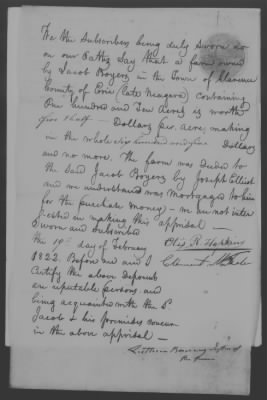 We the Subscribers being duly sworn do
on our Oaths Say that a farm owned
by Jacob Boyers in the Town of Clarence
County of Erie (late Niagara) containing
One hundred and Ten Acres is worth
five & half — Dollars per acre, making
in the whole Six hundred and five Dollars
and no more. The farm was deeded to
the Said Jacob Boyers by Joseph Ellicott
and we understand was mortgaged to him
for the purchase money — we are not inter
ested in making this appraisal —
Sworn and Subscribed
the 19th day of February Otis R. Hopkins
1822. Before me and I Clement
Certify the above deponents
are reputable persons and
being acquainted with the Sd
Jacob & his premises concur
in the above appraisal —